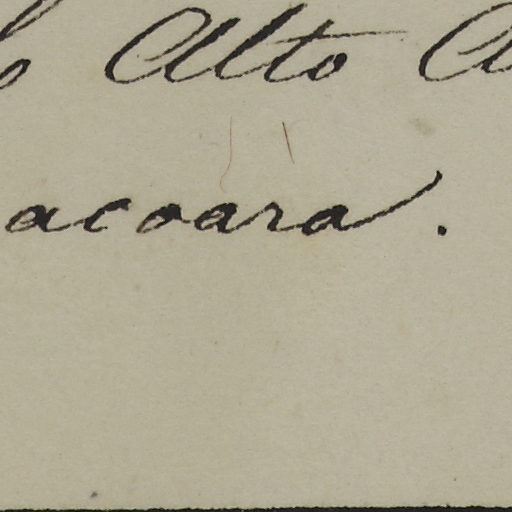 o Alto A
acoara.